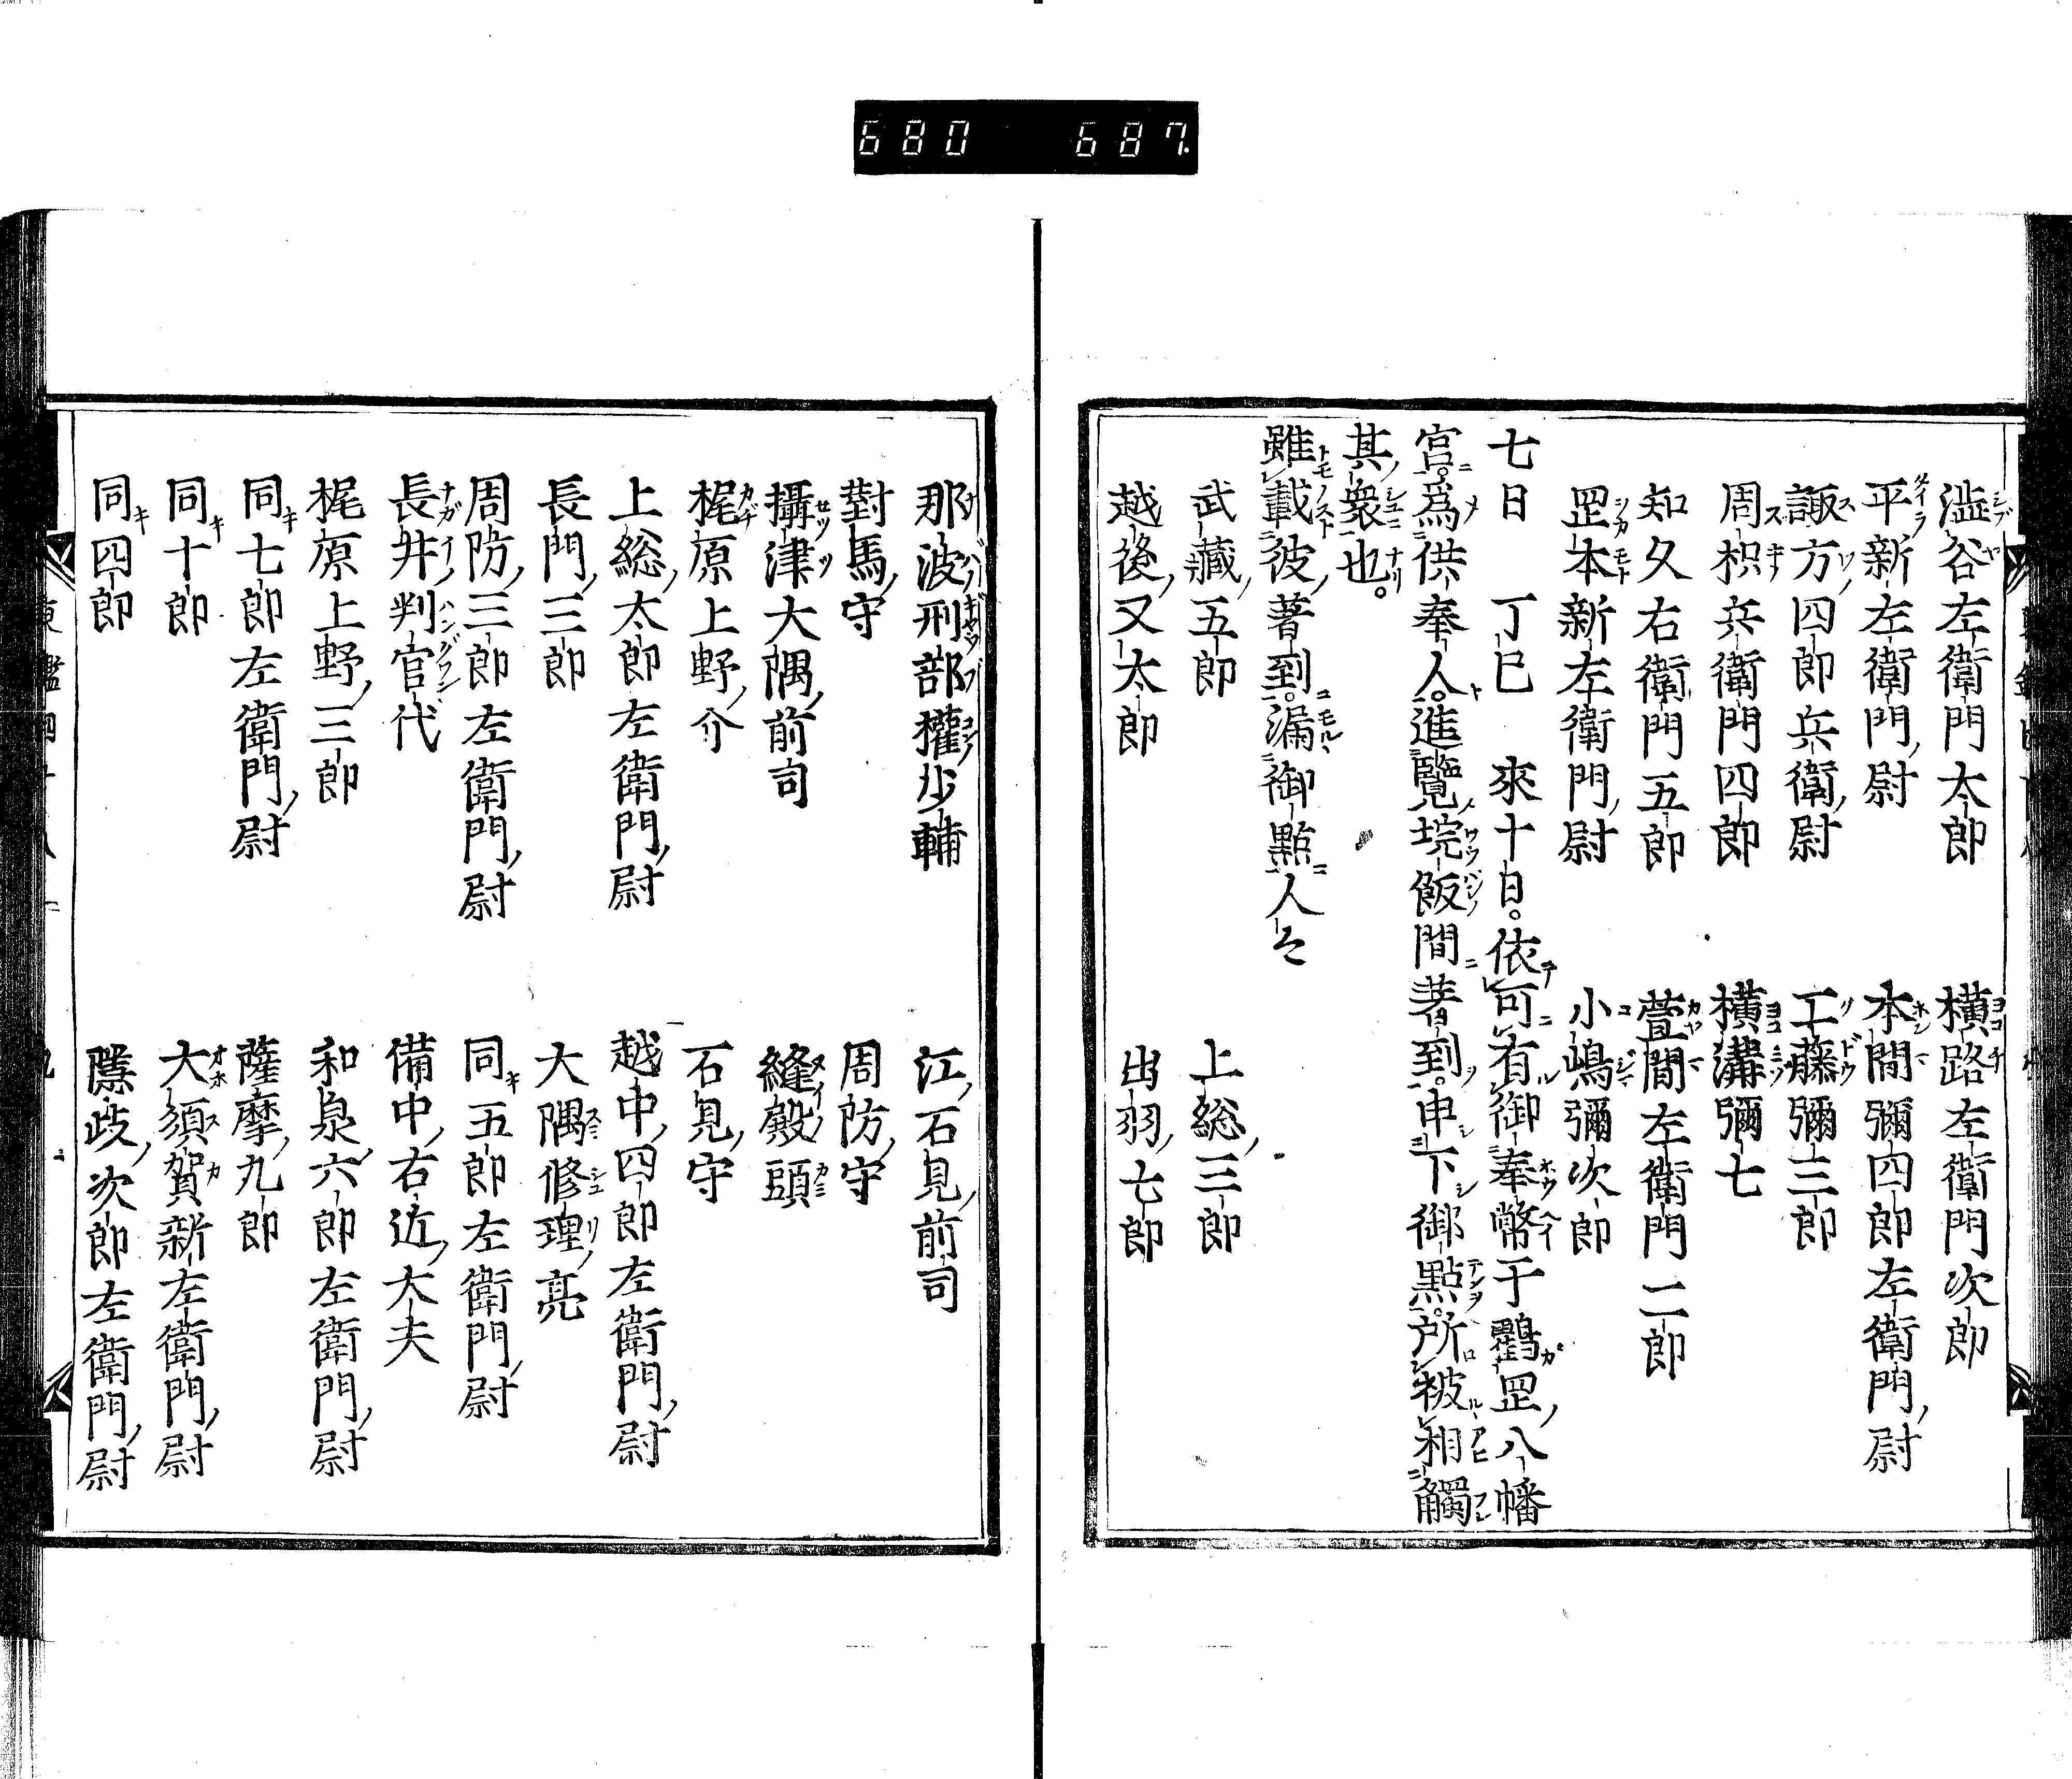 680 687
澁谷左衛門太郎 横路左衛門次郎
平新左衛門尉 本間彌四郎左衛門尉
諏方四郎兵衛尉 工藤彌三郎
周枳兵衛門四郎 横溝彌七
知久右衛門五郎 萱間左衛門二郎
罡本新左衛門尉 小嶋彌次郎
七日 丁巳 來十日。依可有御奉幣于鸖罡八幡
宮。爲供奉人。進覽垸飯間著到。申下御點。所被相觸
其衆也。
雖載彼著到。漏御點人々
武藏五郎 上総三郎
越後又太郎 出羽七郎
那波刑部權少輔 江石見前司
對馬守 周防守
攝津大隅前司 縫殿頭
梶原上野介 石見守
上総太郎左衛門尉 越中四郎左衛門尉
長門三郎 大隅修理亮
周防三郎左衛門尉 同五郎左衛門尉
長井判官代 備中右近大夫
梶原上野三郎 和泉六郎左衛門尉
同七郎左衛門尉 薩摩九郎
同十郎 大須賀新左衛門尉
同四郎 隱歧次郎左衛門尉